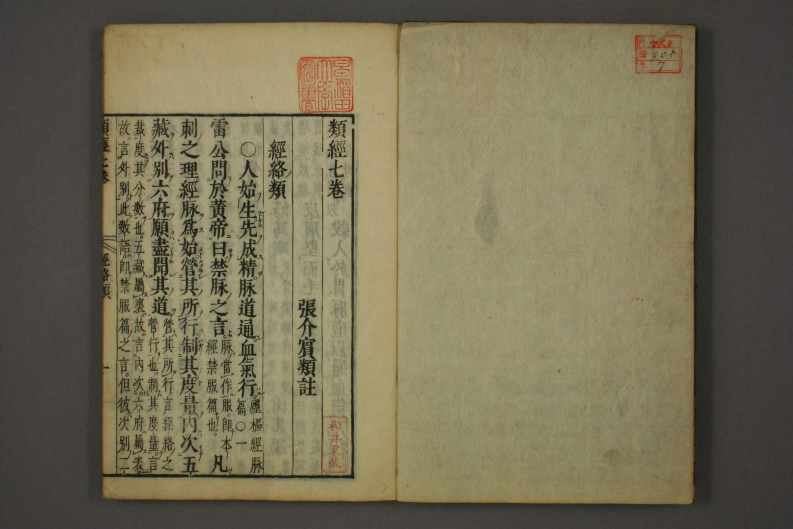 類經七卷
張介賓類註
經絡類
○人始生先成精脉道通血氣行靈樞經脉篇○一
雷公問於黃帝曰禁脉之言脉當作服即本經禁服篇也凡
刺之理經脉爲始營其所行制其度量內次五
藏外別六府願盡聞其道營其所行言經絡之營行也制其度量言
裁度其分數也五藏屬裏故言內次六府屬表
故言外別此數語即禁服篇之言但彼次別二
經絡類